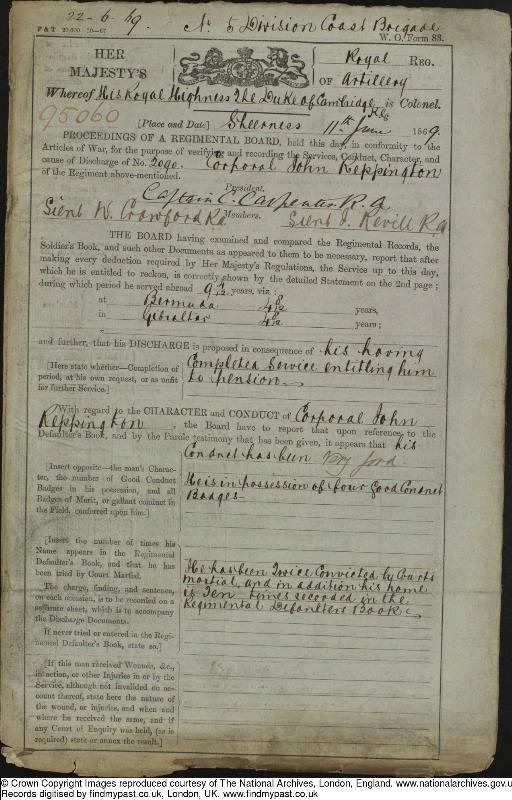 22-6-69. No 5 Division Coast Brigade
W. O. Form 83.
HER
MAJESTY'S
Royal REG.
OF Artillery
Whereof His Royal Highness The Duke of Cambridge K.G. is Colonel.
95060
[Place and Date] Sheerness 11th June 1869.
PROCEEDINGS OF A REGIMENTAL BOARD, held this day, in conformity to the
Articles of War, for the purpose of verifying and recording the Services, Conduct, Character, and
cause of Discharge of No. 2090. Corporal John Keppington
of the Regiment above-mentioned.
President.
Captain E. Carpenter R.A.
Lieut W. Crawford RA Members. Lieut J. Revill RA
THE BOARD having examined and compared the Regimental Records, the
Soldier's Book, and such other Documents as appeared to them to be necessary, report that after
making every deduction required by Her Majesty's Regulations, the Service up to this day,
which he is entitled to reckon, is correctly shown by the detailed Statement on the 2nd page ;
during which period he served abroad 9 4/12 years, viz :
at Bermuda 4 8/12 years,
in Gibraltar 4 8/12 years ;
and further, that his DISCHARGE is proposed in consequence of his having
[Here state whether—Completion of
period, at his own request, or as unfit
for further Service.]
Completed Service entitling him
to pension
With regard to the CHARACTER and CONDUCT of Corporal John
Keppington , the Board have to report that upon reference to the
Defaulter's Book, and by the Parole testimony that has been given, it appears that his
Conduct has been Very good
[Insert opposite—the man's Charac-
ter, the number of Good Conduct
Badges in his possession, and all
Badges of Merit, or gallant conduct in
the Field, conferred upon him.]
He is in possession of four Good Conduct
Badges-
[Insert the number of times his
Name appears in the Regimental
Defaulter's Book, and that he has
been tried by Court Martial.
The charge, finding, and sentences,
on each occasion, is to be recorded on a
separate sheet, which is to accompany
the Discharge Documents.
If never tried or entered in the Regi-
mental Defaulter's Book, state so.]
He has been Twice Convicted by Courts
martial, and in addition his name
is Ten times recorded in the
Regimental Defaulters Book.
[If this man received Wounds, &c.,
in action, or other Injuries in or by the
Service, although not invalided on ac-
count thereof, state here the nature of
the wound, or injuries, and when and
where he received the same, and if
any Court of Enquiry was held, (as is
required) state or annex the result.]
© Crown Copyright Images reproduced courtesy of The National Archives, London, England. www.nationalarchives.gov.u
Records digitised by findmypast.co.uk, London, UK. www.findmypast.co.uk